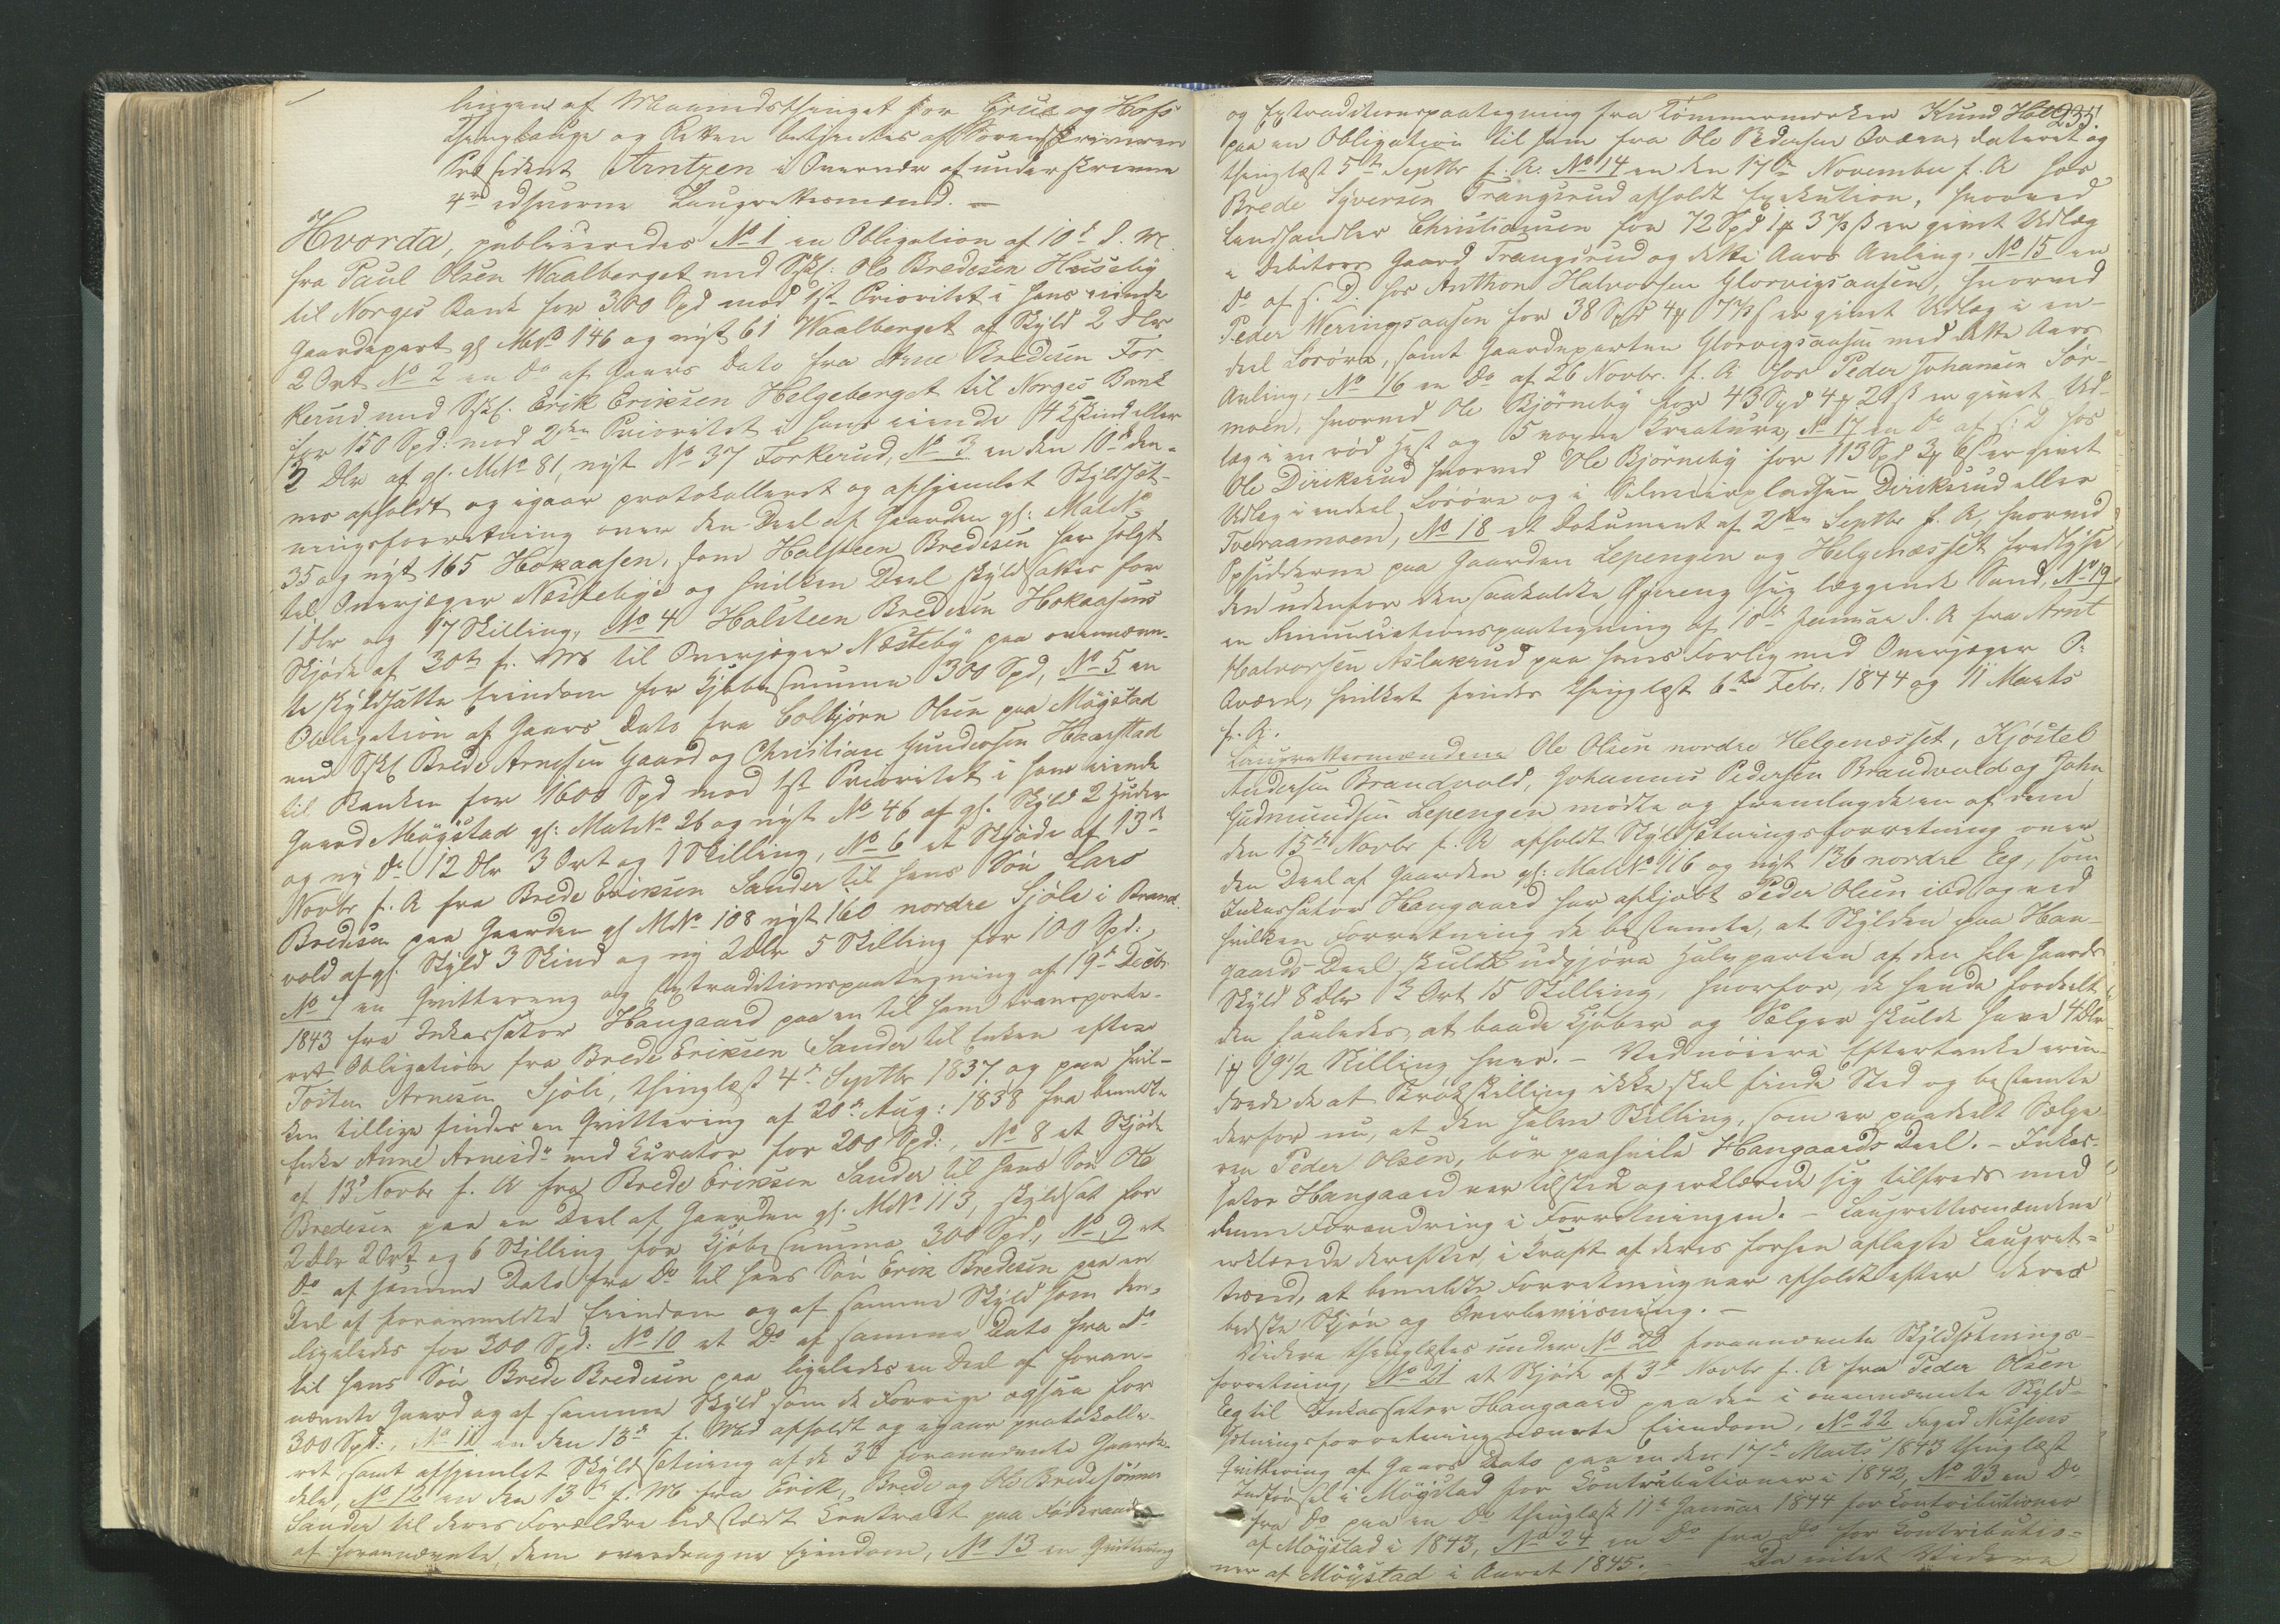 lingen af Maanedsthinget for Grue og Hofs
Thinglauge og Retten betjentes af Sorenskriveren
President Arntzen i Overvær af underskrevne
4re edsvorne Laugrettesmænd. —
Hvorda, publiceredes No 1 en Obligation af 10d d. M.
fra Paul Olsen Waalberget med Sskf: Ole Bredesen Husseby
til Norges Bank for 300 Spd mod 1st Prioritet i hans eiende
Gaardepart gl MNo 146 og nyt 61 Waalberget af Skyld 2 Dlr
2 Ort No 2 en Do af Gaars Dato fra Arne Bredesen For-
kerud med Sskf. Erik Eriksen Helgeberget til Norges Bank
for 150 Spd: mod 2den Prioritet i hans eiende 4 Skind eller
2 Dlr af gl. MNo 81, nyt No 37 Forkerud, No 3 en den 10d den-
nes afholdt og igaar protokolleret og afhjemlet Skyldsæt-
ningsforretning over den Deel af Gaarden gl: Mat No
35 og nyt 165 Hokaasen, som Halsteen Bredesen har solgt
til Overjæger Næsteby og hvilken Deel skyldsattes for
1 Dlr og 17 Skilling, No 4 Halsteen Bredesen Hokaasens
Skjøde af 30te f. M til Overjæger Næsteby paa ovennævn-
te skyldsatte Eiendom for Kjøbesumma 300 Spd, No 5 en
Obligation af Gaars Dato fra Colbjørn Olsen paa Møystad
med Sskf Brede Arnesen Gaard og Christian Gundersen Haarstad
til Banken for 1600 Spd mod 1st Prioritet i hans eiende
Gaard Møystad gl: MatNo 26 og nyt No 46 af gl. Skyld 2 Huder
og ny Do 12 Dlr 3 Ort og 1 Skilling, No 6 et Skjøde af 13d
Novbr f. A fra Brede Eriksen Sander til hans Søn Lars
Bredesen paa Gaarden gl MNo 108 nyt 160 nordre Sjøle i Brand-
vold af gl. Skyld 3 Skind og ny 2 Dlr 5 Skilling for 100 Spd:,
No 7 en Qvittering og Extraditionspaategning af 19d Decbr
1843 fra Inkassator Haugaard paa en til ham transporte-
ret Obligation fra Brede Eriksen Sander til Enken efter
Tosten Arnesen Sjöli, thinglæst 4d Septbr 1837 og paa hvil-
ken tillige findes en Qvittering af 20d Aug: 1838 fra bemeldte
Enke Anne Arnesdr med Kurator for 200 Spd:, No 8 et Skjøde
af 13d Novbr f. A fra Brede Eriksen Sander til hans Søn Ole
Bredesen paa en Deel af Gaarden gl. MNo 113, skyldsat for
2 Dlr 2 Ort og 6 Skilling for Kjøbesumma 300 Spd, No 9 et
Do af samme Dato fra Do til hans Søn Erik Bredesen paa en
Deel af foranmeldte Eiendom og af samme Skyld som den,
ligeledes for 300 Spd: No 10 et Do af samme Dato fra Do
til hans Søn Brede Bredesen paa ligeledes en Deel af foran-
nævnte Gaard og af samme Skyld som de Forrige ogsaa for
300 Spd:, No 11 en den 13d f. Md afholdt og igaar protokolle-
ret, samt afhjemlet Skyldsætning af de 3de forannævnte Gaarde-
dele, No 12 en den 13d f. M fra Erik, Brede og Ole Bredesønner
Sander til deres Forældre udstedt Contrakt paa Føderaad
af forannævnte, dem overdragne Eiendom, No 13 en Qvittering
233
og Extraditionspaategning fra Tömmermerker Knud Hol
paa en Obligation til ham fra Ole Pedersen Qværn, dateret og
thinglæst 5te Septbr f. A. No 14 en den 17de November f. A hos
Brede Syversen Trangsrud afholdt Exekution, hvorved
Landhandler Christiansen for 72 Spd 1 3 ß er givet Udlæg
i Debitors Gaard Trangsrud og dette Aars Avling, No 15 en
Do af s. D. hos Anthon Halvorsen Glorvigsaasen, hvorved
Peder Weringsaasen for 38 Spd 4 ß er givet Udlæg i en-
deel Lösøre, samt Gaardeparten Glorvigsaasen med dette Aars
Avling, No 16 en Do af 26 Novbr. f. A hos Peder Johansen Lør-
moen, hvorved Ole Björneby for 43 Spd 4 21 ß er givet Ud-
læg i en rød Hest og 5 Kreature, No 17 en Do af s: D hos
Ole Diriksrud hvorved Ole Björneby for 113 Spd 3 6 ß er givet
Udlæg i endeel Lösøre og i Selveierpladsen Diriksrud eller
Tveraamoen, No 18 et Dokument af 2den Septbr f. A, hvorved
Opsidderne paa Gaarden Lepengen og Helgenæsset fredlyse
den udenfor den saakaldte Øyereng sig læggende Sand, No 19
en Renunciationspaategning af 10d Januar d. A fra Arnt
Halvorsen Aslakrud paa hans Forlig med Overjæger P:
Qværn, hvilket findes thinglæst 6te Febr. 1844 og 11 Marts
f. A.
Laugrettesmændene Ole Olsen nordre Helgenæsset, Kjöstel
Andersen Brandvold, Johannes Pedersen Brandvold og John
Gudmundsen Lepengen mødte og fremlagde en af dem
den 15de Novbr f. A afholdt Skyldsætningsforretning over
den Deel af Gaarden gl: MatNo 116 og nyt 136 nordre Eeg, som
Inkassator Haugaard har afkjøbt Peder Olsen ibd og ved
hvilken Forretning de bestemte, at Skylden paa Hau-
gaards Deel skulde udgjøre Halvparten af den hele Gaards
Skyld 8 Dlr 3 Ort 15 Skilling, hvorfor, de havde fordeelt
den saaledes, at baade Kjøber og Sælger skulde have 4 Dlr
1 19 1/2 Skilling hver. – Ved nøiere Eftertanke erin-
drede de at Brøkskilling ikke skal finde Sted og bestemte
derfor nu, at den halve Skilling, som er paadeelt Sælge-
ren Peder Olsen, bør paahvile Haugaards Deel. – Inkas-
sator Haugaard var tilstede og erklærede sig tilfreds med
denne Forandring i Forretningen. – Laugrettesmændene
erklærede derefter, i Kraft af deres forhen aflagte Laugret-
teseed, at bemeldte Forretning var afholdt efter deres
bedste Skjøn og Overbeviisning. —
Videre thinglæstes under No 20 forannævnte Skyldsætnings-
forretning, No 21 et Skjøde af 3d Novbr f. A fra Peder Olsen
Eeg til Inkassator Haugaard paa den i ovennævnte Skyld-
sætningsforretning nævnte Eiendom, No 22 Foged Nissens
Qvittering af Gaars Dato paa en den 17de Marts 1843 thinglæst
Indførsel i Møystad for Contributioner i 1842, No 23 en Do
fra Do paa en Do thinglæst 11d Januar 1844 for Contributioner
af Møystad i 1843, No 24 en Do fra Do for Contributio-
ner af Møystad i Aaret 1845. – Da intet Videre